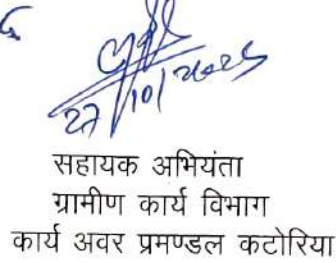 27/10/2025
सहायक अभियंता
ग्रामीण कार्य विभाग
कार्य अवर प्रमण्डल कटोरिया